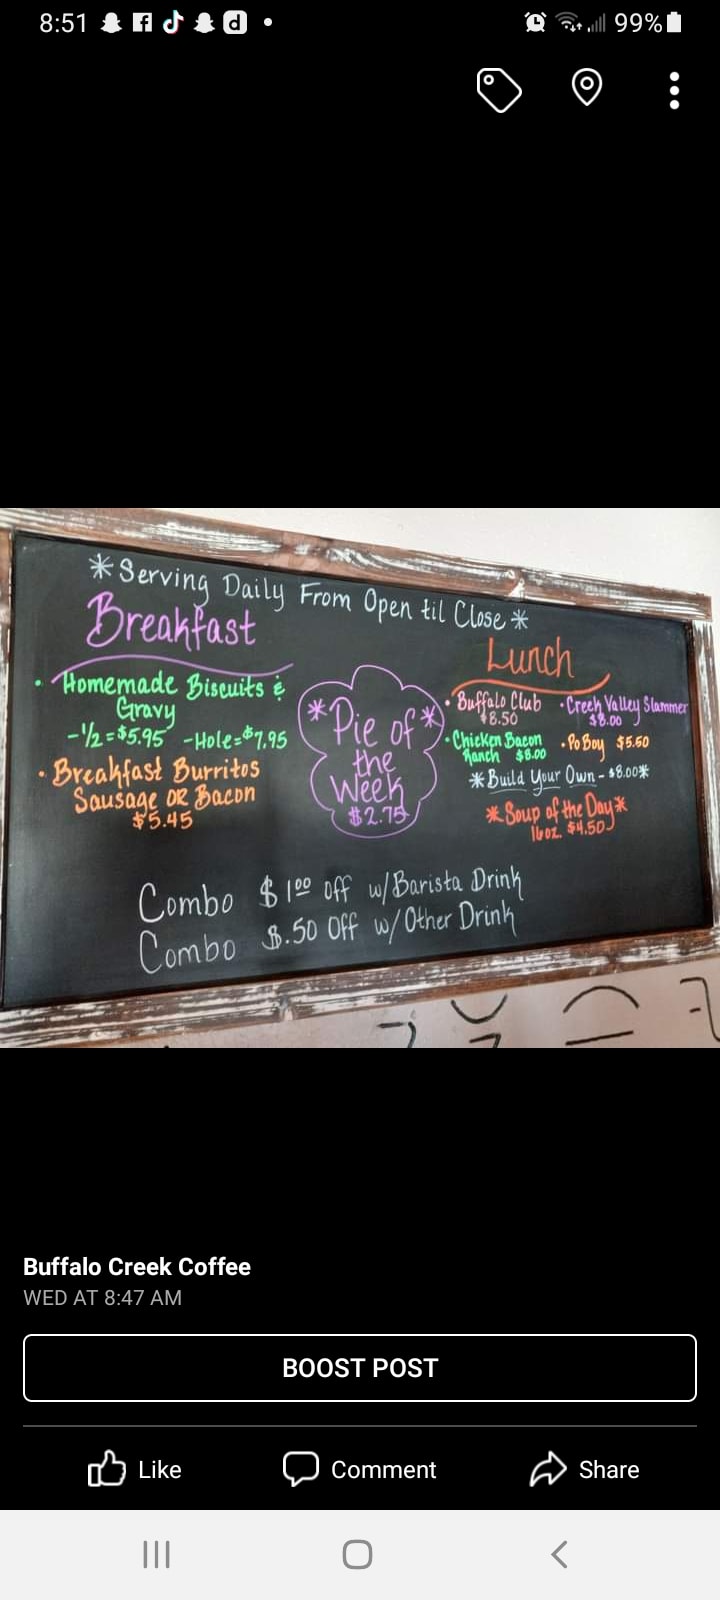 8:51
99%
*Serving Daily From Open til Close*
Breakfast
• Homemade Biscuits &
Gravy
-1/2=$5.95 -Hole=$7.95
• Breakfast Burritos
Sausage OR Bacon
$5.45
*Pie of*
the
Week
$2.75
Lunch
• Buffalo Club
$8.50
• Creek Valley Slammer
$8.00
• Chicken Bacon
Ranch $8.00
• Po Boy $5.50
*Build Your Own - $8.00*
*Soup of the Day*
16oz. $4.50
Combo $1.00 off w/Barista Drink
Combo $.50 Off w/Other Drink
Buffalo Creek Coffee
WED AT 8:47 AM
BOOST POST
Like Comment Share